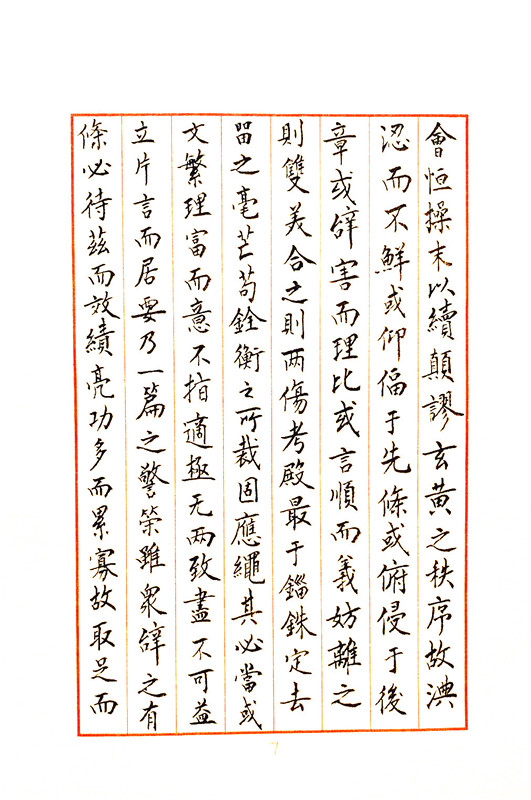 會恒操末以續顛謬玄黃之秩序故淟
涊而不鮮或仰偪于先條或俯侵于後
章或辭害而理比或言順而義妨離之
則雙美合之則两傷考殿最于錙銖定去
留之毫芒苟銓衡之所裁固應繩其必當或
文繁理富而意不指適極无两致盡不可益
立片言而居要乃一篇之警策雖衆辭之有
條必待茲而效績亮功多而累寡故取足而
7